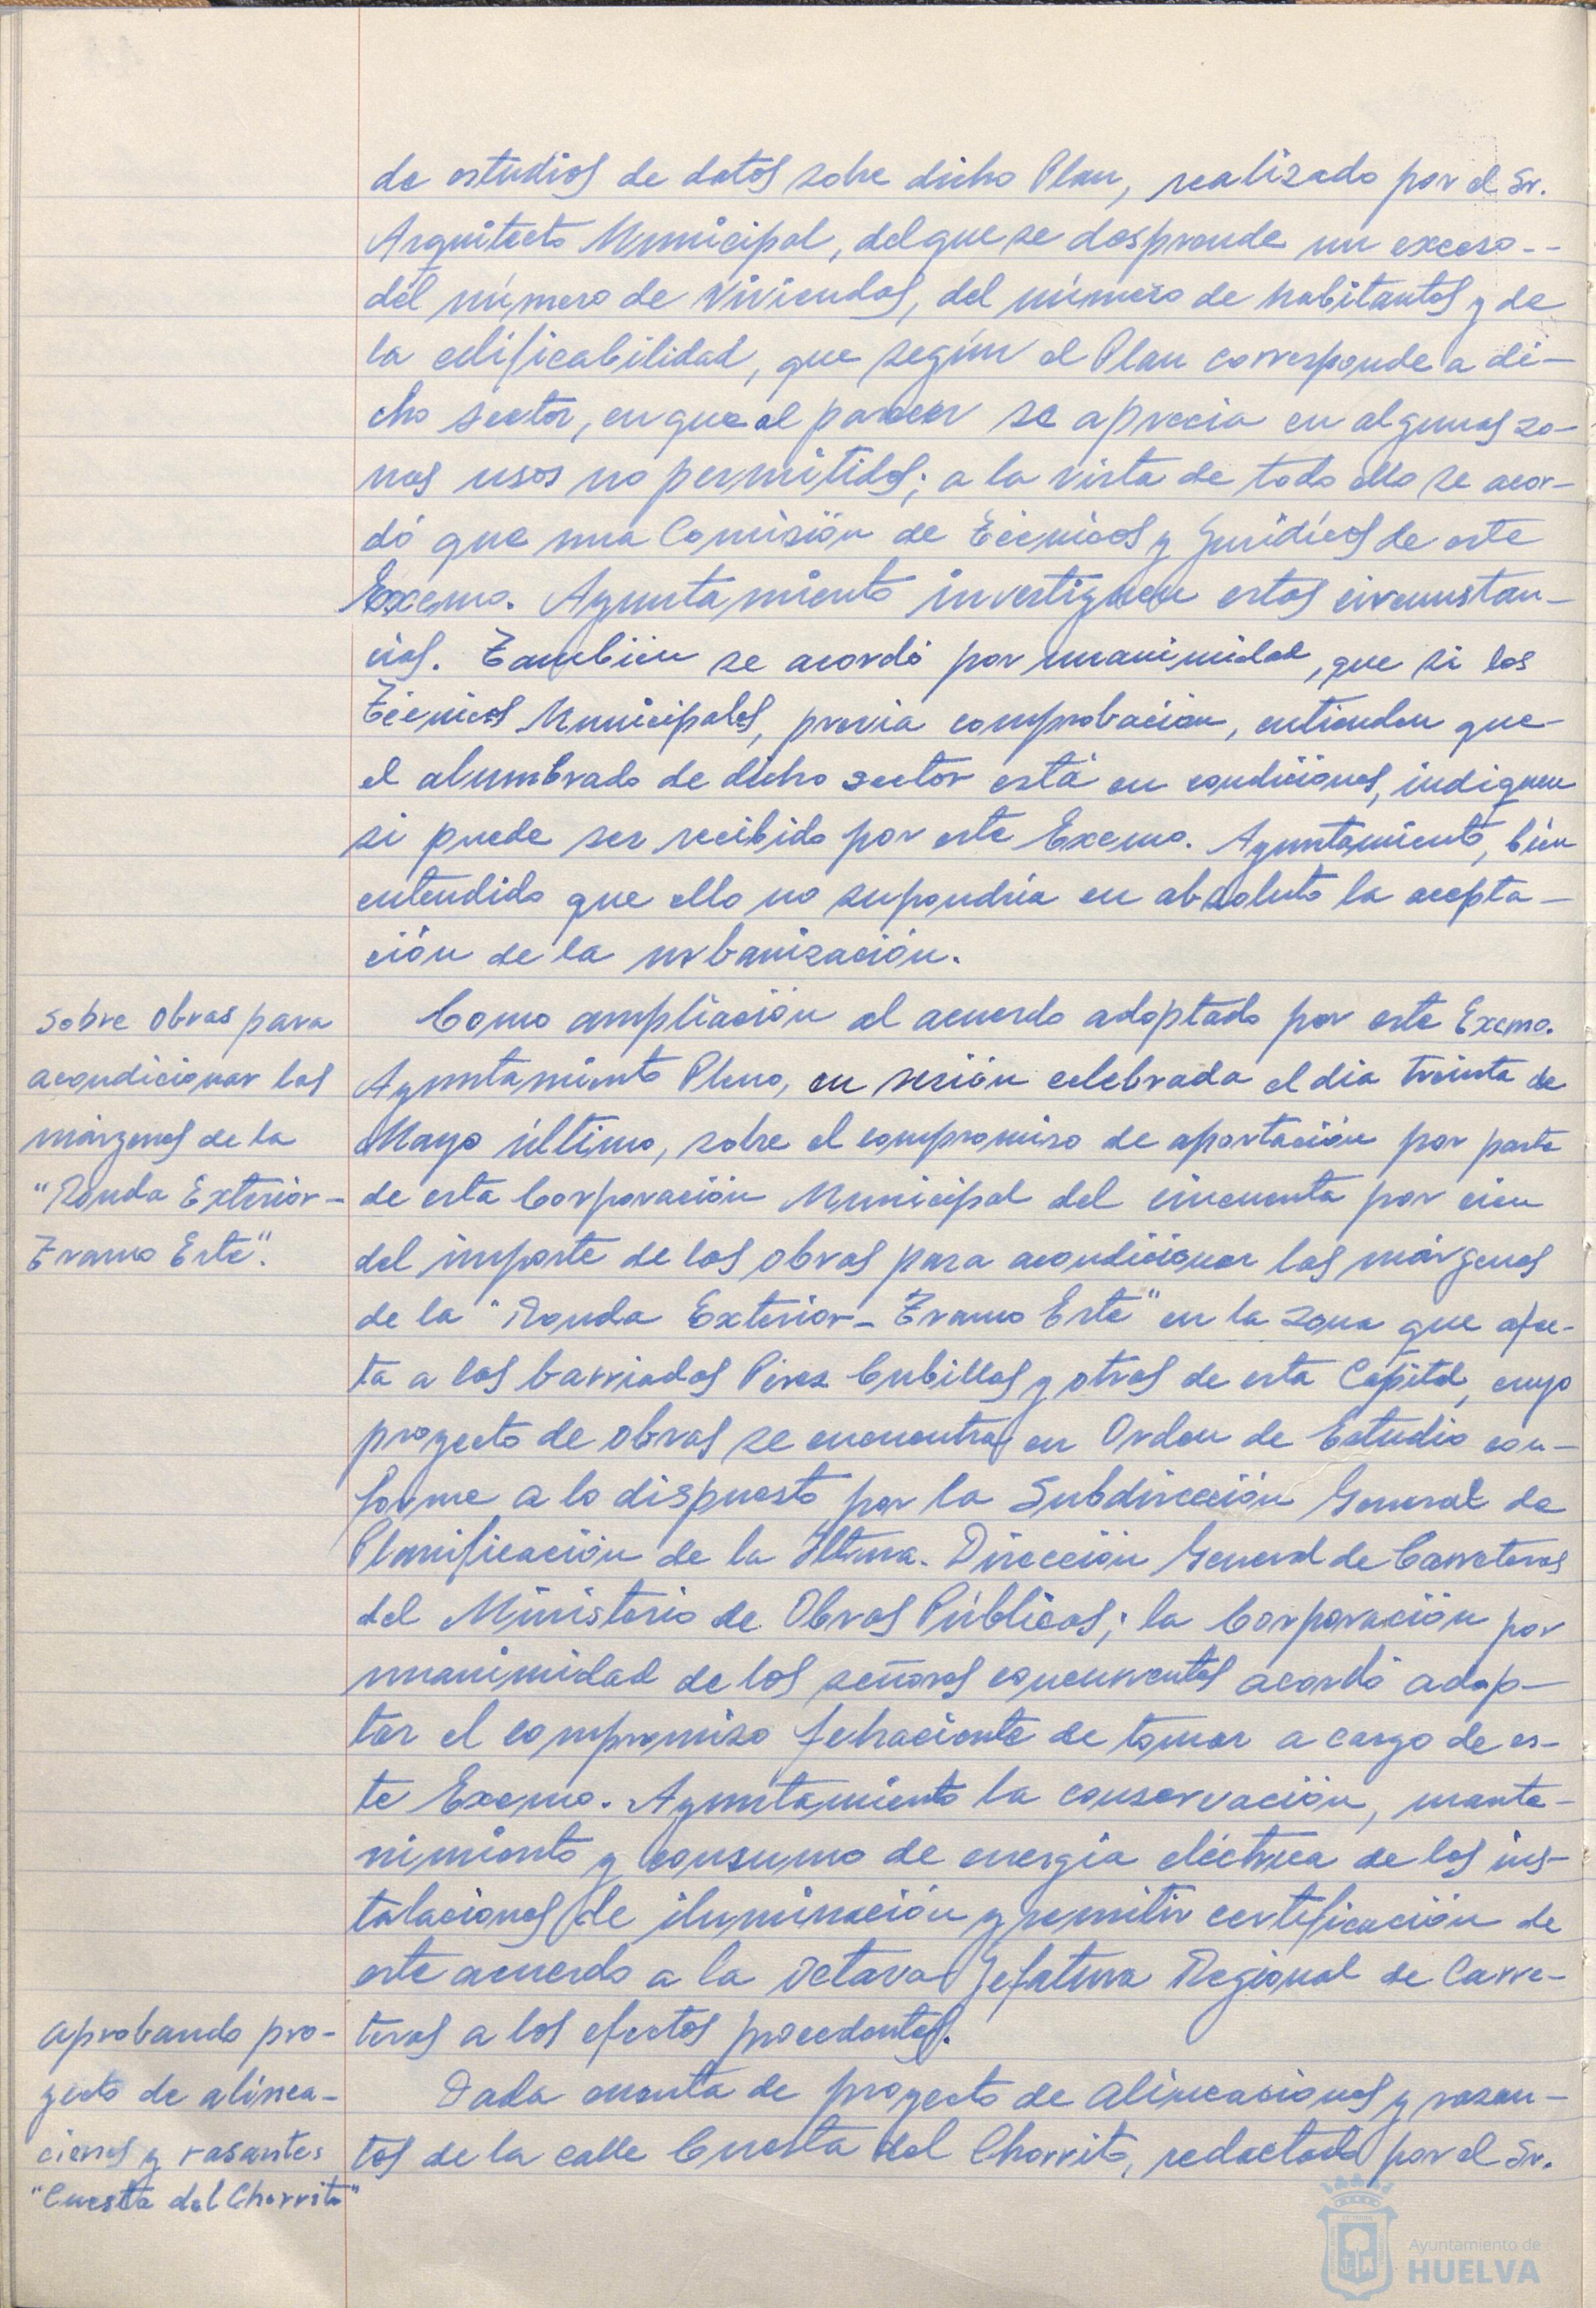 de estudios de datos sobre dicho Plan, realizado por el Sr.
Arquitecto Municipal, del que se desprende un exceso--
del número de viviendas, del número de habitantes y de
la edificabilidad, que según el Plan corresponde a di-
cho sector, en que al parecer se aprecia en algunas zo-
nas usos no permitidos; a la vista de todo ello se acor-
dó que una Comisión de Técnicos y Jurídicos de este
Excmo. Ayuntamiento investiguen estas circunstan-
cias. También se acordó por unanimidad, que si los
Técnicos Municipales, previa comprobación, entienden que
el alumbrado de dicho sector está en condiciones, indiquen
si puede ser recibido por este Excmo. Ayuntamiento, bien
entendido que ello no supondría en absoluto la acepta-
ción de la urbanización.
Sobre obras para
acondicionar los
márgenes de la
"Ronda Exterior-
Tramo Este".
Como ampliación al acuerdo adoptado por este Excmo.
Ayuntamiento Pleno, en sesión celebrada el día treinta de
Mayo último, sobre el compromiso de aportación por parte
de esta Corporación Municipal del cincuenta por cien
del importe de las obras para acondicionar las márgenes
de la "Ronda Exterior-Tramo Este" en la zona que afec-
ta a las barriadas Pérez Cubillas y otras de esta Capital, cuyo
proyecto de obras se encuentra en Orden de Estudio con-
forme a lo dispuesto por la Subdirección General de
Planificación de la Iltma. Dirección General de Carreteras
del Ministerio de Obras Públicas; la Corporación por
unanimidad de los señores concurrentes acordó adop-
tar el compromiso fehaciente de tomar a cargo de es-
te Excmo. Ayuntamiento la conservación, mante-
nimiento y consumo de energía eléctrica de las ins-
talaciones de iluminación y remitir certificación de
este acuerdo a la Octava Jefatura Regional de Carre-
teras a los efectos procedentes.
Aprobando pro-
yecto de alinea-
ciones y rasantes
"Cuesta del Chorrito"
Dada cuenta de proyecto de alineaciones y rasan-
tes de la calle Cuesta del Chorrito, redactado por el Sr.
Ayuntamiento de
HUELVA